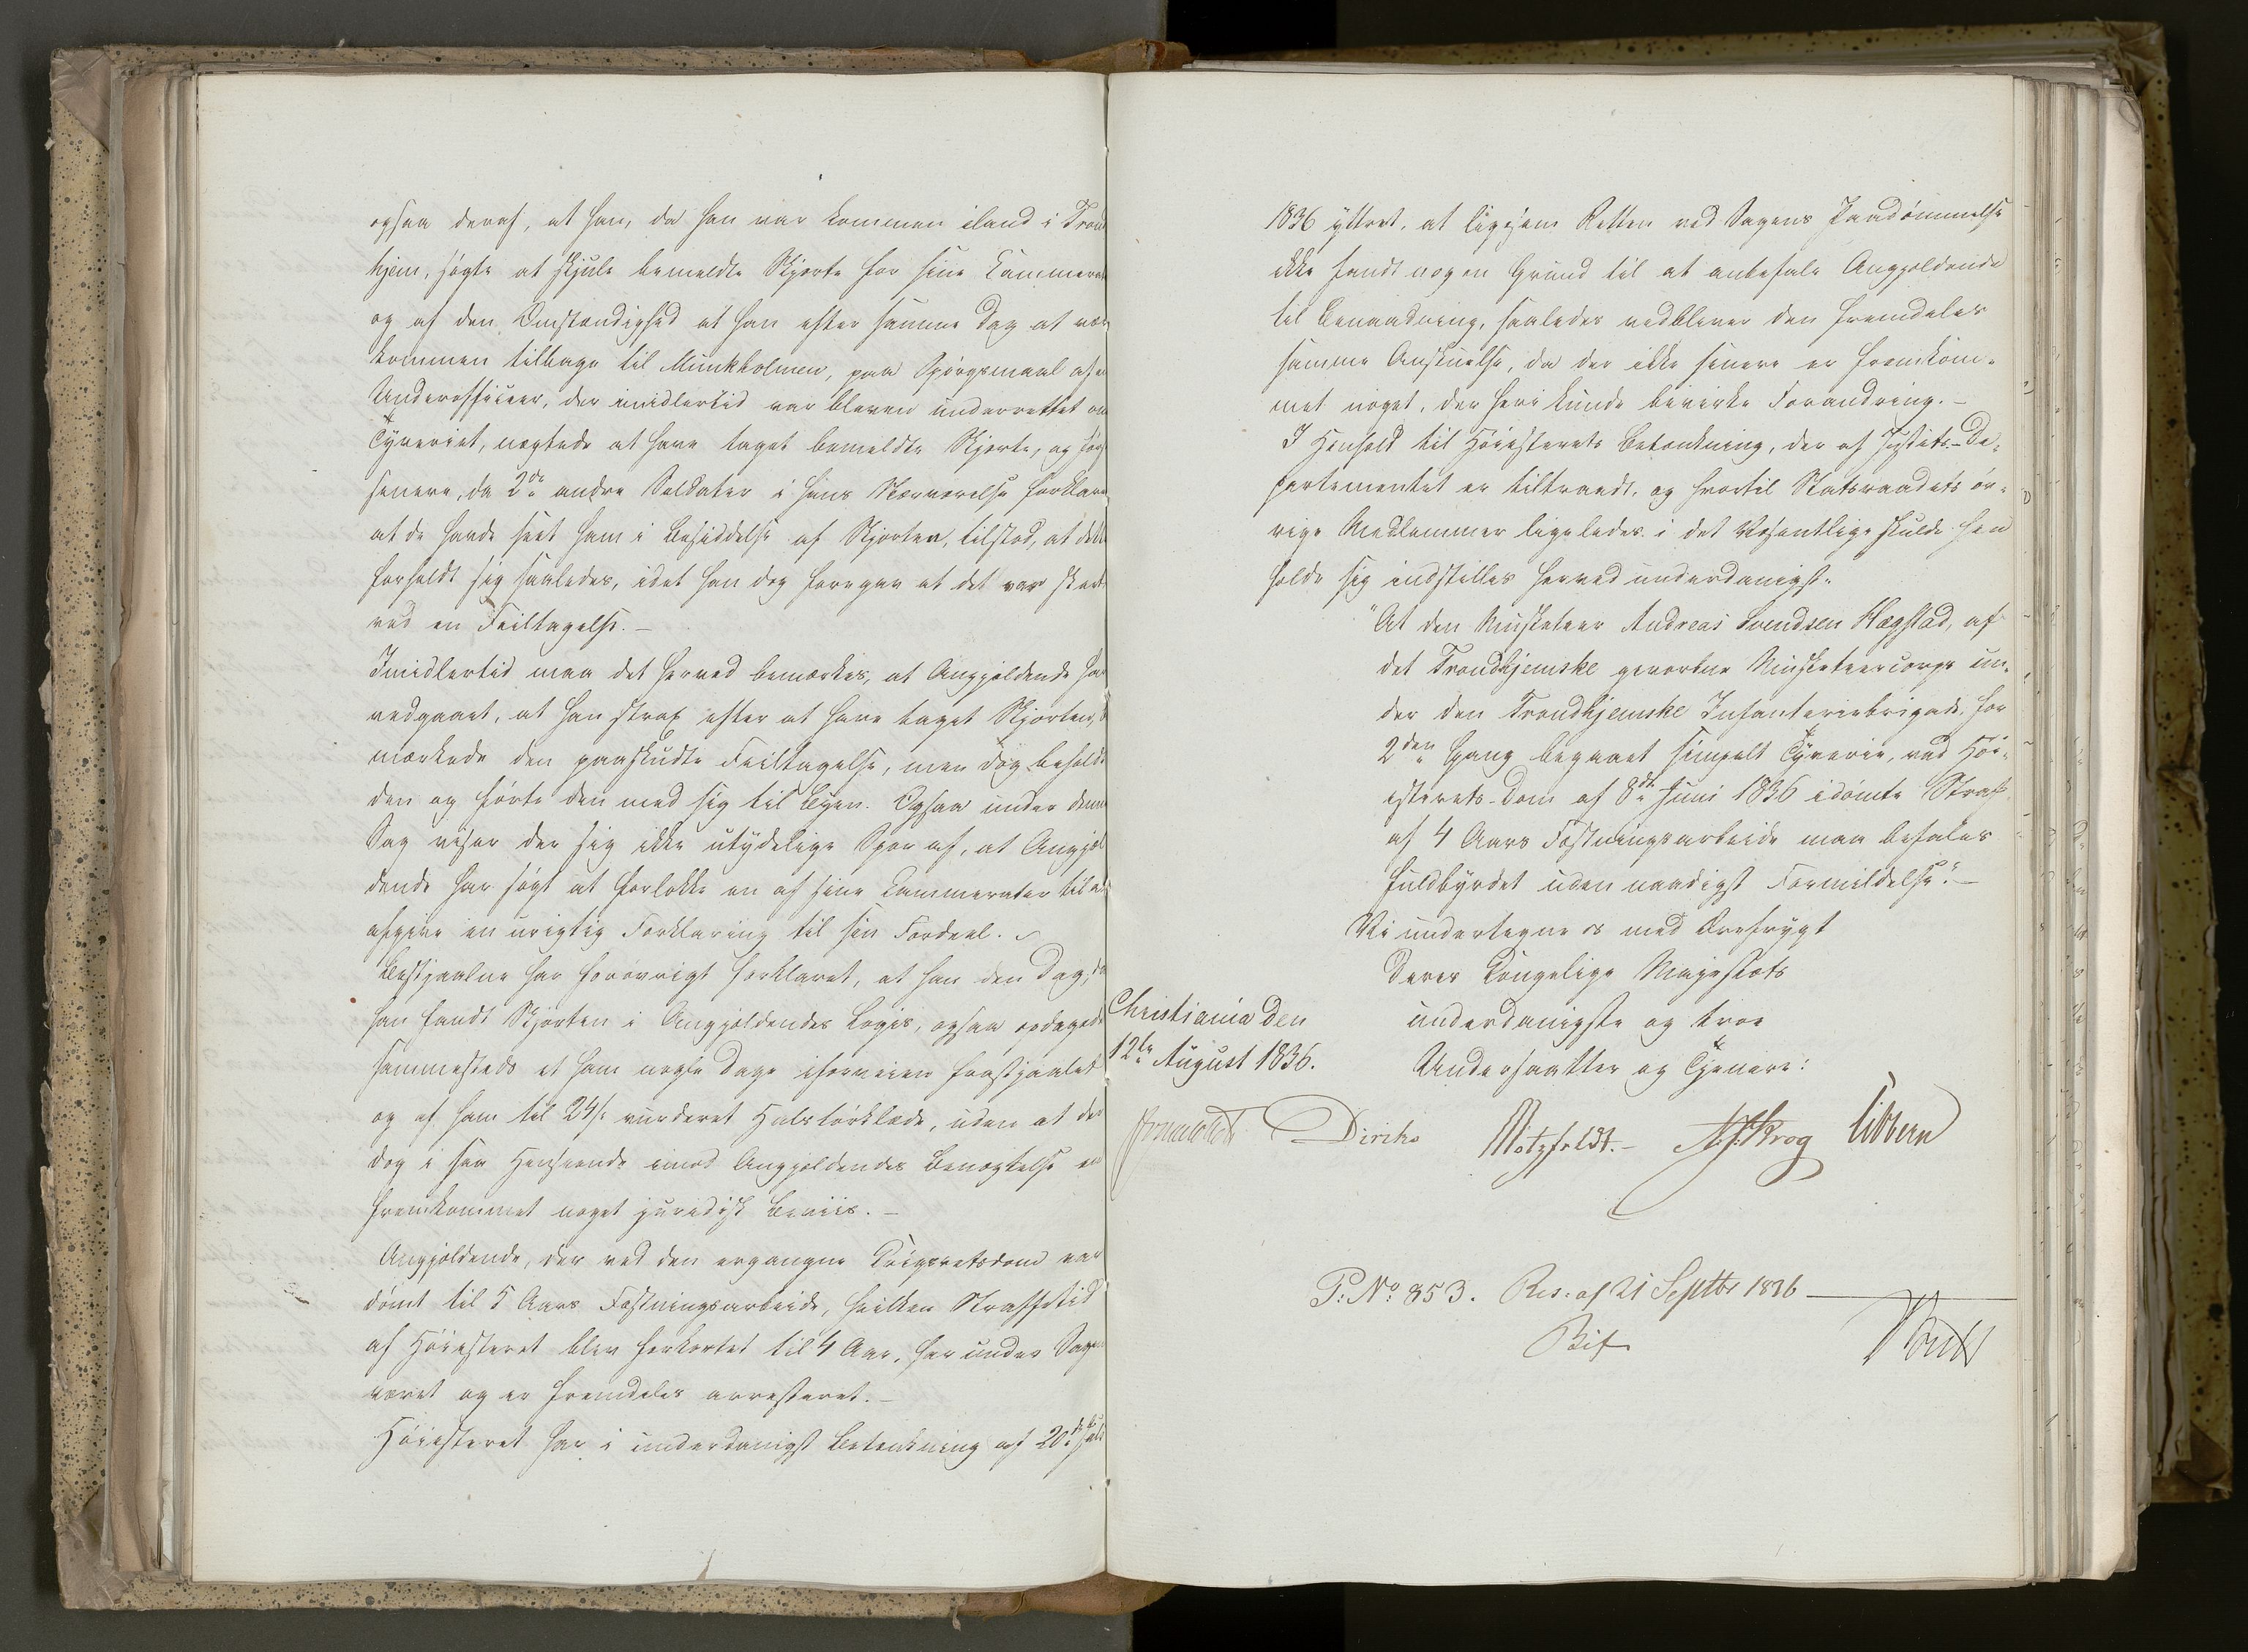 ogsaa deraf, at han, da han var kommen iland i Trond
hjem, søgte at skjule bemeldte Skjorte for sine Kammerat
og af den Omstændighed at han efter samme Dag at vær
kommen tilbage til Munkholmen, paa Spørgsmaal af en
Underofficeer, der imidlertid var bleven underrettet om
Tyveriet, nægtede at have taget bemeldte Skjorte, og først
senere, da 2de andre Soldater i hans Nærværelse forklare
at de havde seet ham i Besiddelse af Skjorten, tilstod, at dette
forholdt sig saaledes, idet han dog foregav at det var skeet
ved en Feiltagelse.—
Imidlertid maa det herved bemærkes, at Angjeldende har
vedgaaet, at han strax efter at have taget Skjorten, b
mærkede den paaskudte Feiltagelse, men dog beholdt
den og førte den med sig til Byen. Ogsaa under denne
Sag viser der sig ikke utydelige Spor af, at Angjæl
dende har søgt at forlokke en af sine Kammerater til at
afgive en urigtig Forklaring til sin Fordeel.
Bestjaalne har forøvrigt forklaret, at han den Dag, da
han fandt Skjorten i Angjeldendes Logis, ogsaa opdagede
sammesteds et ham nogle Dage iforveien frastjaalet
og af ham til 24 s: vurderet Halstørklæde, uden at der
dog i saa Henseende imod Angjeldendes Benægtelse er
fremkommet noget juridisk Beviis.—
Angjeldende, der ved den ergangne Krigsretsdom var
dømt til 5 Aars Fæstningsarbeide, hvilken Straffetid
af Høiesteret blev forkortet til 4 Aar, har under Sagen
været og er fremdeles arresteret.—
Høiesteret har i underdanigst Betænkning af 20de Juli
1836 yttret, at ligesom Retten ved Sagens Paadømmelse
ikke fandt nogen Grund til at anbefale Angjeldende
til Benaadning, saaledes vedbliver den fremdeles
samme Anskuelse, da der ikke senere er fremkom-
met noget, der heri kunde bevirke Forandring.—
I Henhold til Høiesterets Betænkning, der af Justits-De-
partementet er tiltraadt, og hvortil Statsraadets øv-
rige Medlemmer ligeledes i det Væsentlige skulde hen
holde sig indstilles herved underdanigst:
"At den Musketeer Andreas Svendsen Hægstad, af
det Trondhjemske gevorbne Musketeercorps un-
der den Trondhjemske Infanteriebrigade, for
2den Gang begaaet simpelt Tyverie, ved Høi-
esterets-Dom af 8de Juni 1836 idømte Straf
af 4 Aars Fæstningsarbeide maa befales
fuldbyrdet uden naadigst Formildelse".—
Vi undertegne os med Ærefrygt
Deres Kongelige Majestæts
Christiania den
underdanigste og troe
12te August 1836.
Undersaatter og Tjenere:
Diriks Motzfeldt.— Krog Sibbern
P: No: 853. Res: af 21 Septbr 1836